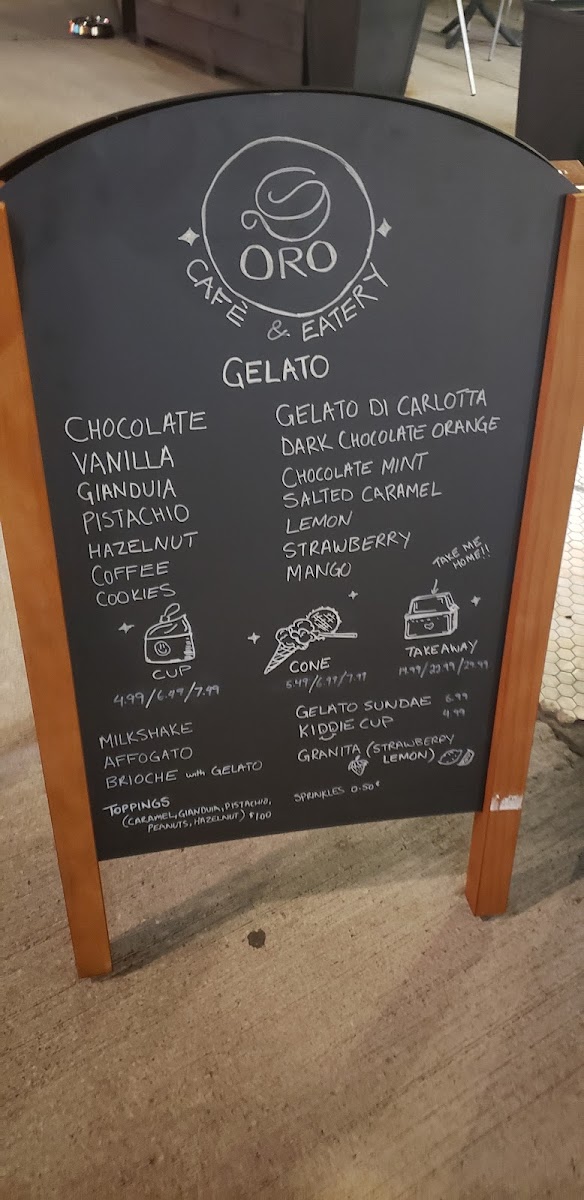 ORO
CAFÈ & EATERY
GELATO
CHOCOLATE
VANILLA
GIANDUIA
PISTACHIO
HAZELNUT
COFFEE
COOKIES
GELATO DI CARLOTTA
DARK CHOCOLATE ORANGE
CHOCOLATE MINT
SALTED CARAMEL
LEMON
STRAWBERRY
MANGO
TAKE ME
HOME!!
CUP
4.99/6.49/7.99
CONE
5.49/6.99/
TAKEAWAY
MILKSHAKE
AFFOGATO
BRIOCHE with GELATO
GELATO SUNDAE 6.99
KIDDIE CUP 4.99
GRANITA (STRAWBERRY
LEMON)
TOPPINGS
(CARAMEL, GIANDUIA, PISTACHIO,
PEANUTS, HAZELNUT) $1.00
SPRINKLES 0.50¢